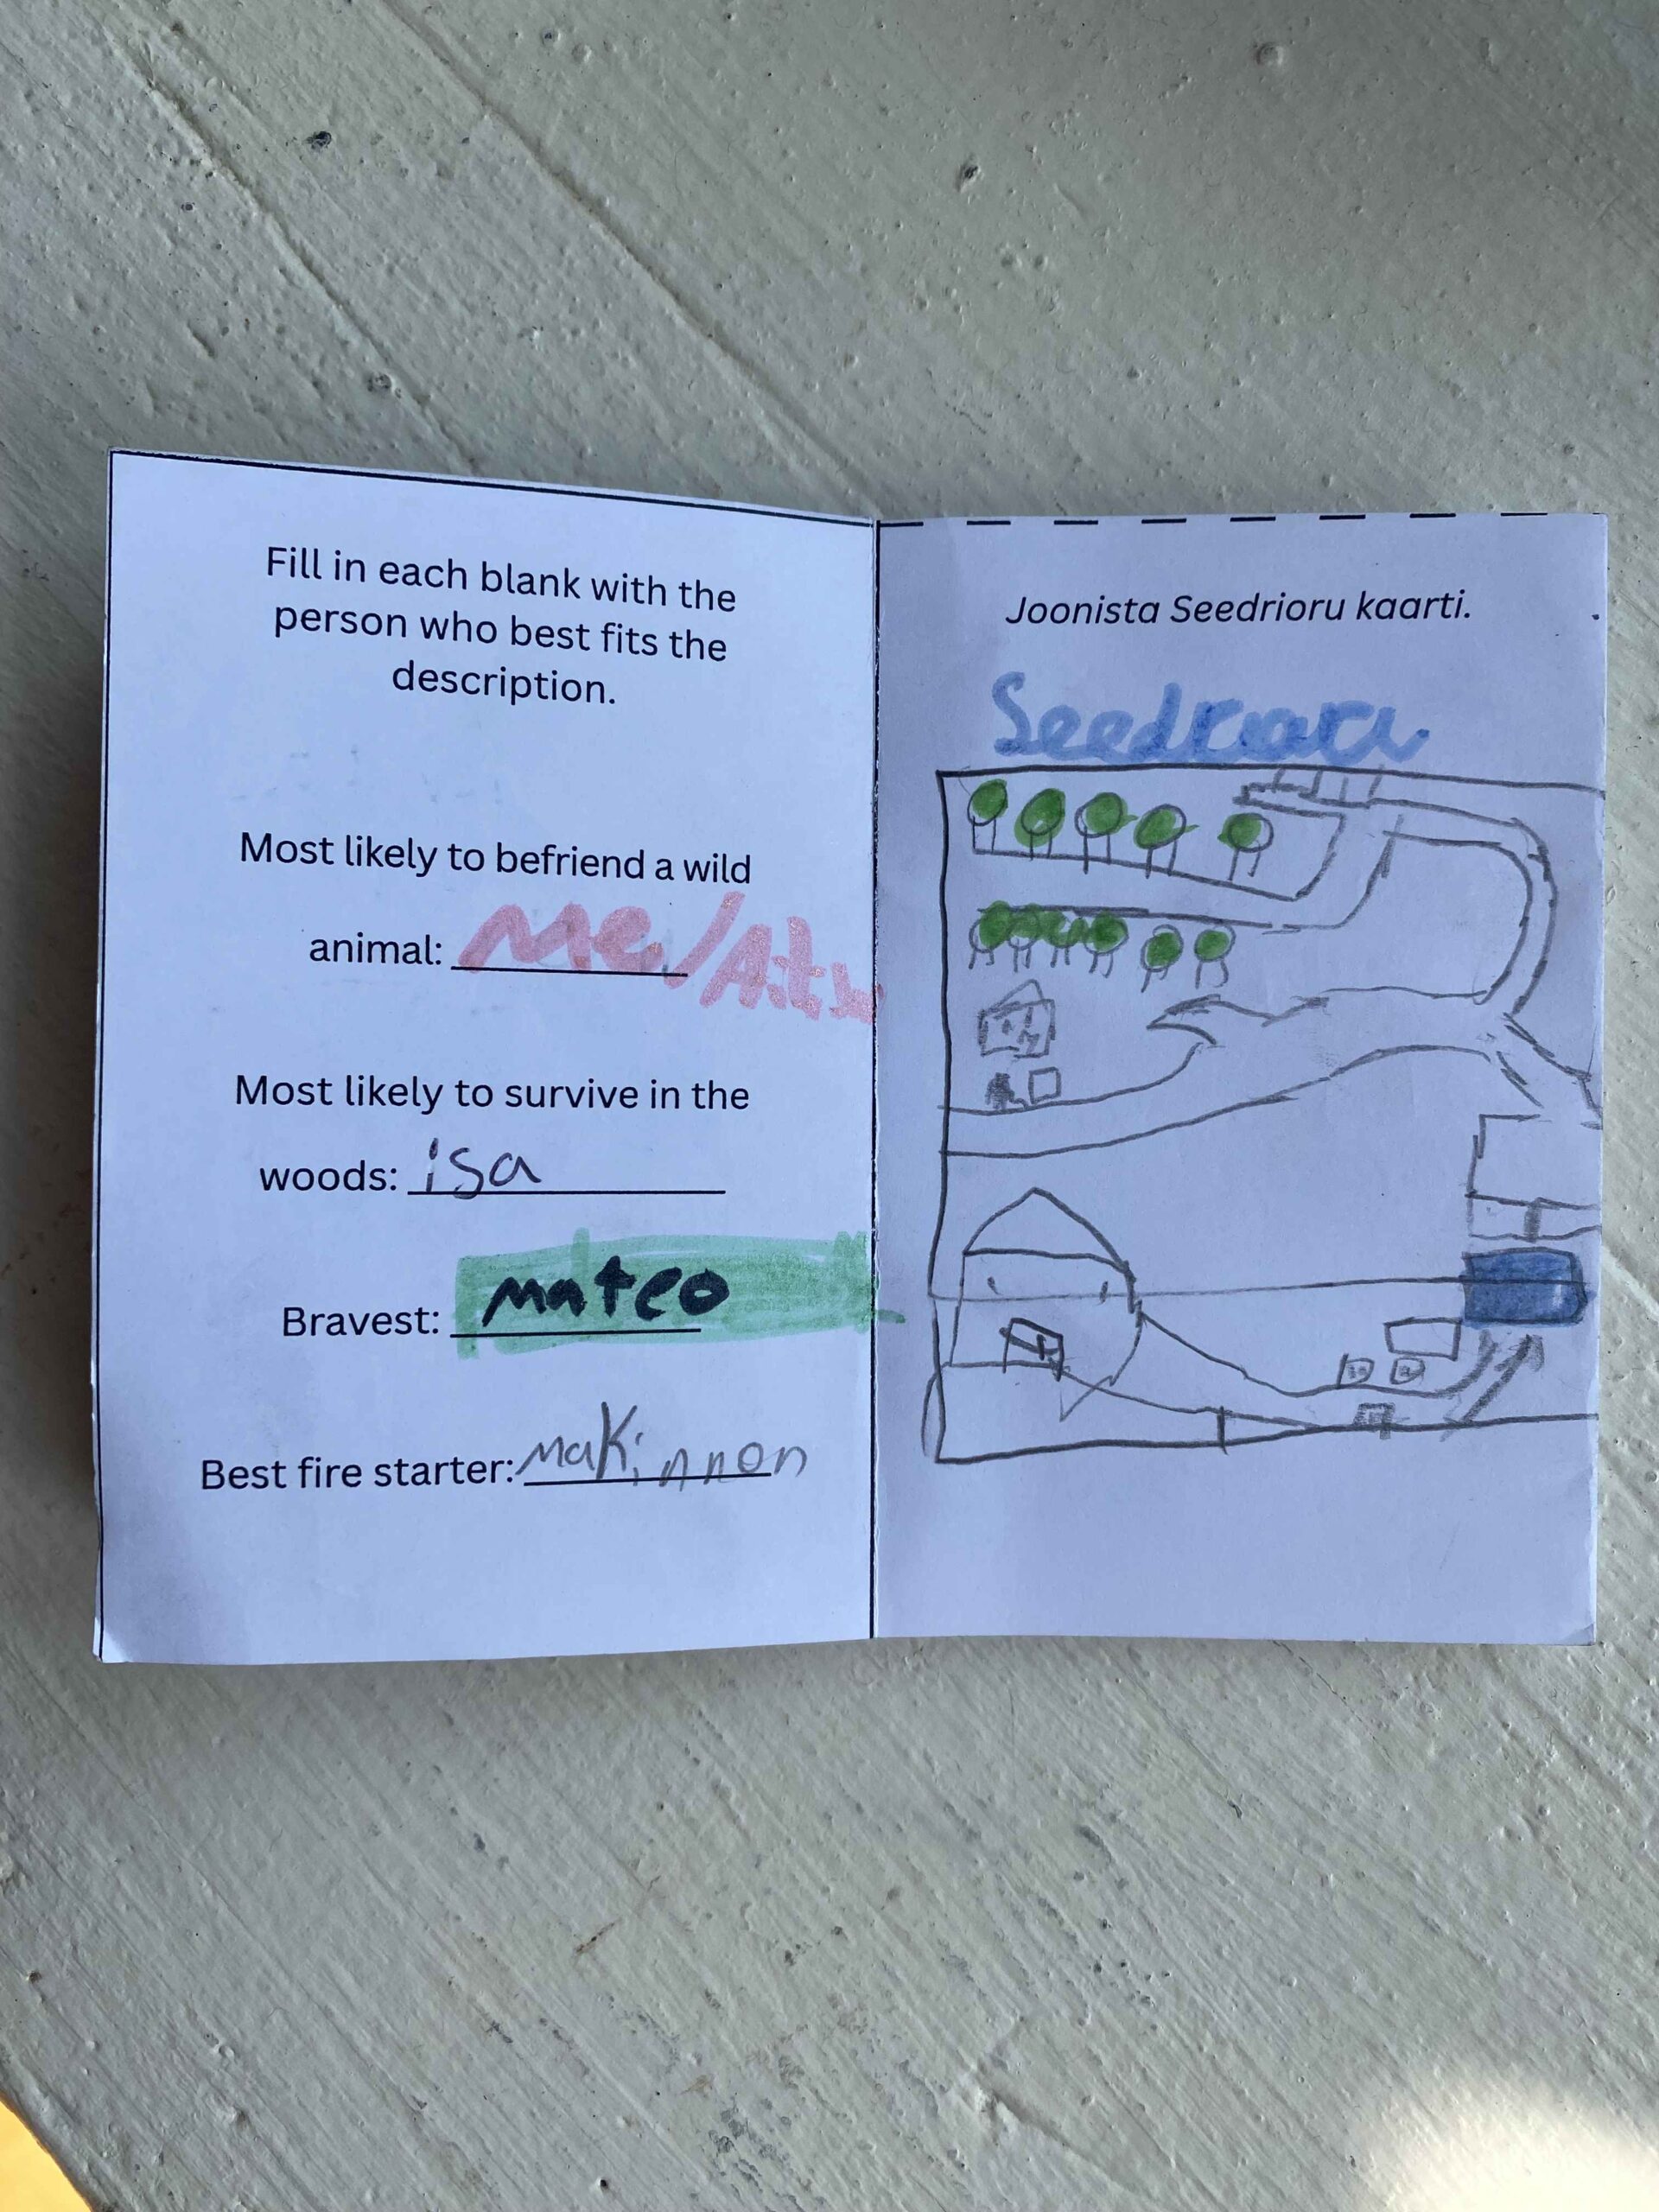 Fill in each blank with the
person who best fits the
description.
Most likely to befriend a wild
animal: me/
Most likely to survive in the
woods: isa
Bravest: mateo
Best fire starter: makinnon
Joonista Seedrioru kaarti.